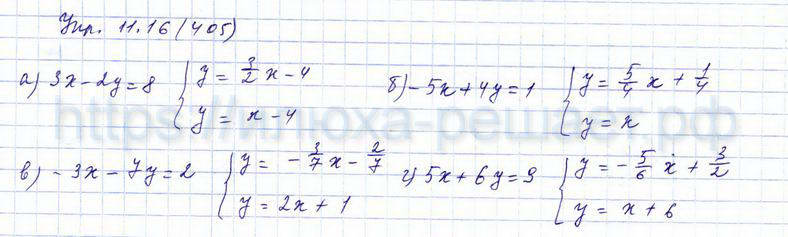 Упр. 11.16(405)
а) 3x-2y=8 { y = 3/2 x - 4
y = x - 4
б) -5x+4y=1 { y = 5/4 x + 1/4
y = x
https://илюха-решает.рф
в) -3x-7y=2 { y = -3/7 x - 2/7
y = 2x + 1
г) 5x+6y=9 { y = -5/6 x + 3/2
y = x + 6